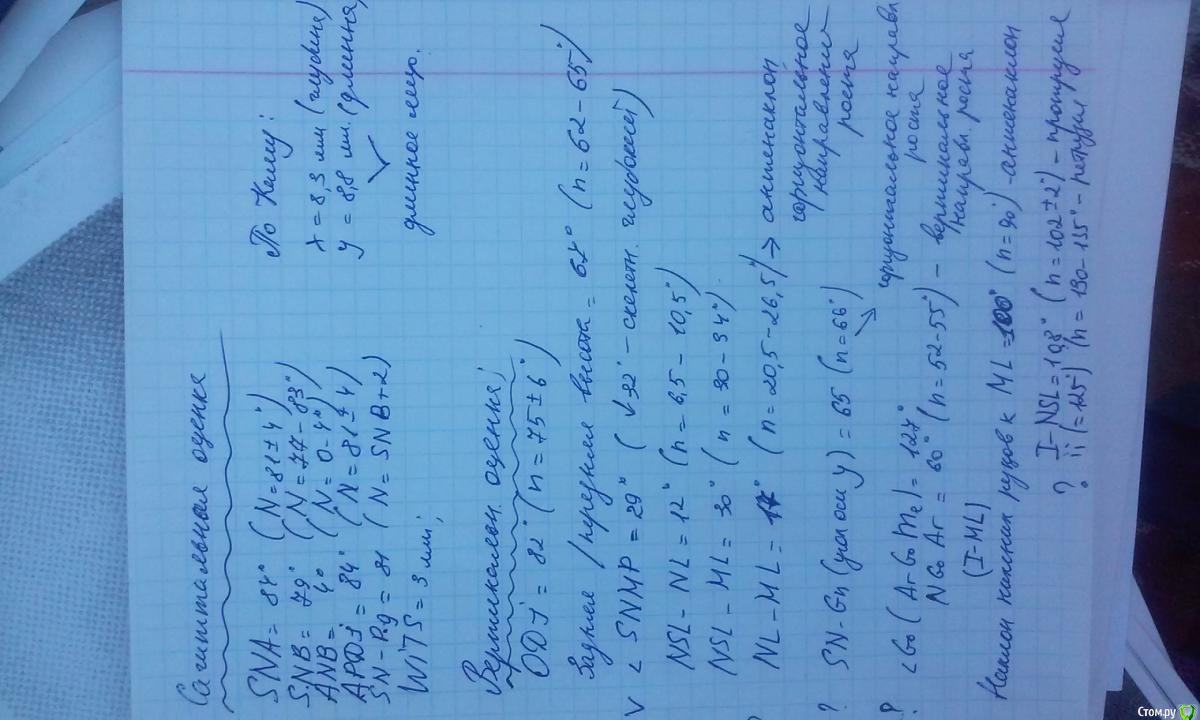 Сагиттальная оценка
SNA = 84° (N = 81 ± 4°)
SNB = 79° (N = 77 - 83°)
ANB = 4° (N = 0-4°)
APDI = 84° (N = 81 ± 4)
SN-Pg = 81 (N = SNB+2)
WITS = 3 мм;
По
x = 8,3 мм (глубина)
y = 8,8 мм (длинна)
длинное лицо.
Вертикальн. оценка:
ODI = 82° (n = 75 ± 6°)
Задняя / передняя высота = 67° (n = 62 - 65°)
V < SNMP = 29° (↓32° - скелетн. глубокий)
NSL - NL = 12° (n = 6,5 - 10,5°)
NSL - ML = 30° (n = 30 - 34°)
NL - ML = (n = 20,5 - 26,5°) → антенаклон
горизонтальное
направления
роста
? SN-Gn (угол оси y) = 65 (n = 66°)
горизонтальное направл
роста
? < Go (Ar Go Me) = 127°
N Go Ar = 60° (n = 52 - 55°) - вертикальное
направ. роста
(I-ML)
Наклон нижних резцов к ML = 100° (n = 90°) - антенаклон
? I-NSL = 108° (n = 102 ± 2°) - протрузия
ii = 125° (n = 130 - 135° - ретрузия
Стом.ру